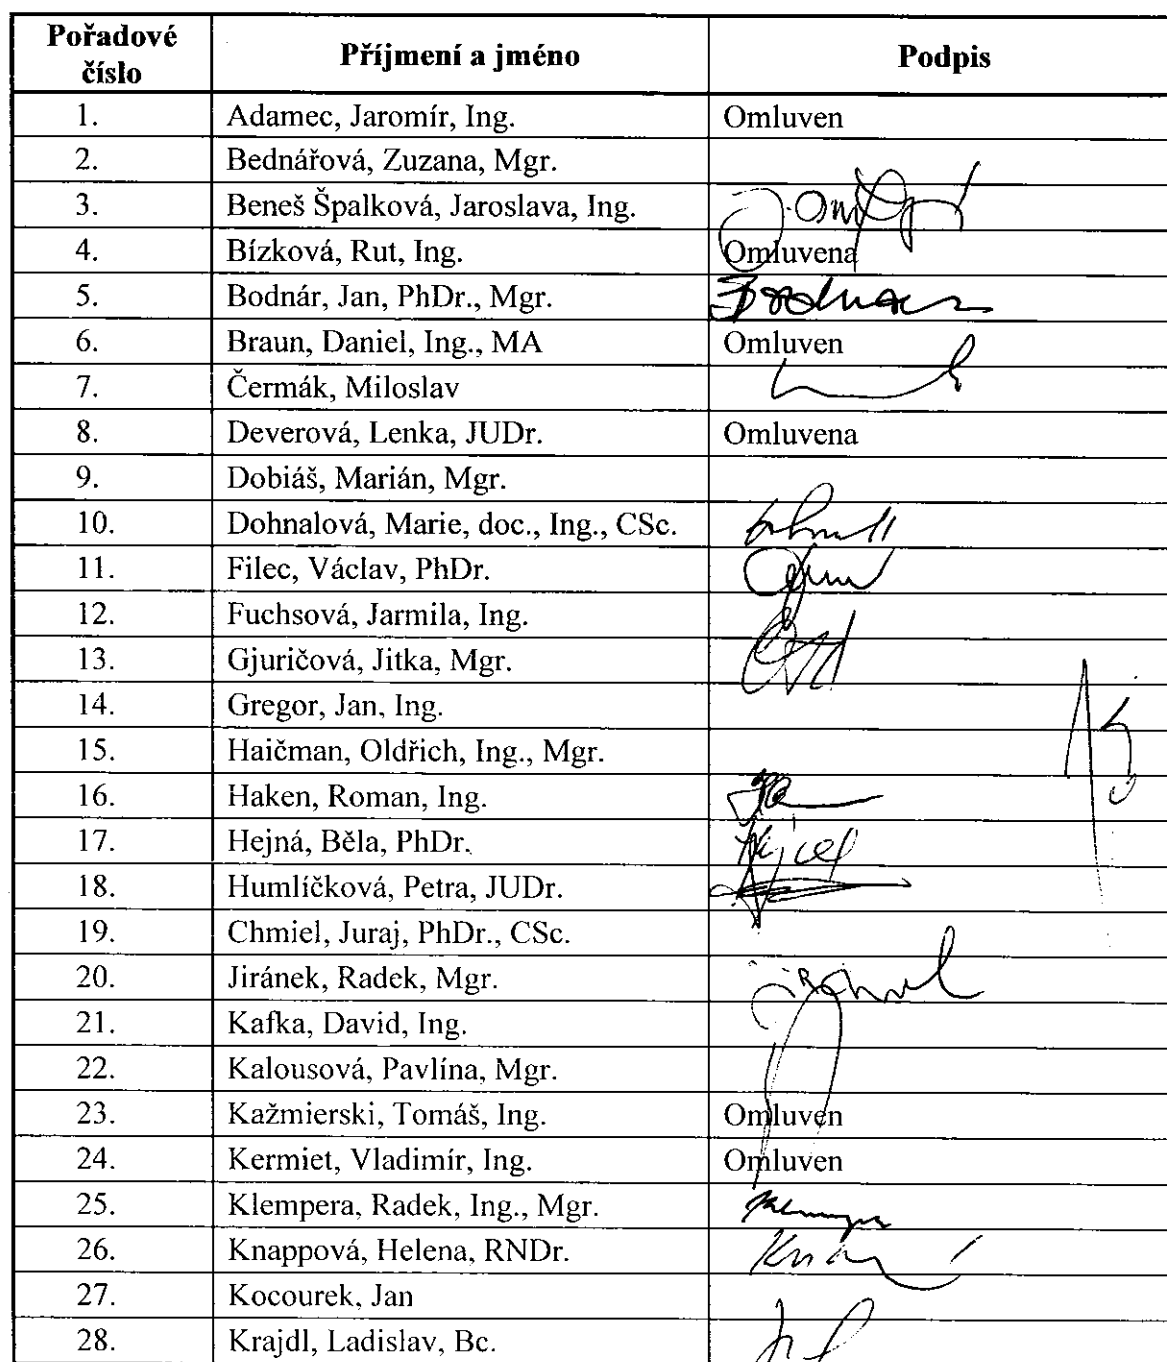 Pořadové číslo Příjmení a jméno Podpis
1. Adamec, Jaromír, Ing. Omluven
2. Bednářová, Zuzana, Mgr.
3. Beneš Špalková, Jaroslava, Ing.
4. Bízková, Rut, Ing. Omluvena
5. Bodnár, Jan, PhDr., Mgr.
6. Braun, Daniel, Ing., MA Omluven
7. Čermák, Miloslav
8. Deverová, Lenka, JUDr. Omluvena
9. Dobiáš, Marián, Mgr.
10. Dohnalová, Marie, doc., Ing., CSc.
11. Filec, Václav, PhDr.
12. Fuchsová, Jarmila, Ing.
13. Gjuričová, Jitka, Mgr.
14. Gregor, Jan, Ing.
15. Haičman, Oldřich, Ing., Mgr.
16. Haken, Roman, Ing.
17. Hejná, Běla, PhDr.
18. Humlíčková, Petra, JUDr.
19. Chmiel, Juraj, PhDr., CSc.
20. Jiránek, Radek, Mgr.
21. Kafka, David, Ing.
22. Kalousová, Pavlína, Mgr.
23. Kažmierski, Tomáš, Ing. Omluven
24. Kermiet, Vladimír, Ing. Omluven
25. Klempera, Radek, Ing., Mgr.
26. Knappová, Helena, RNDr.
27. Kocourek, Jan
28. Krajdl, Ladislav, Bc.